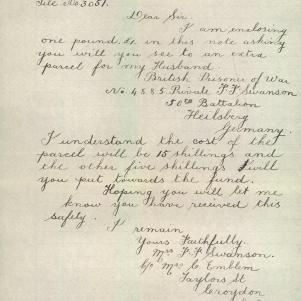 File No 3051.
Dear Sir.
I am enclosing
one pound. in this note asking
you will you see to an extra
parcel for my Husband.
British Prisoner of War
No. 4885 Private F. F. Swanson
50th Battalion
Heilsberg
Germany.
I understand the cost of the
parcel will be 15 shillings and
the other five shillings will
you put towards the fund
Hoping you will let me
know you have received this
safely.
I remain
Yours Faithfully.
Mrs F. F. Swanson.
C/o Mrs C. Emblem
Taylors St
Croydon